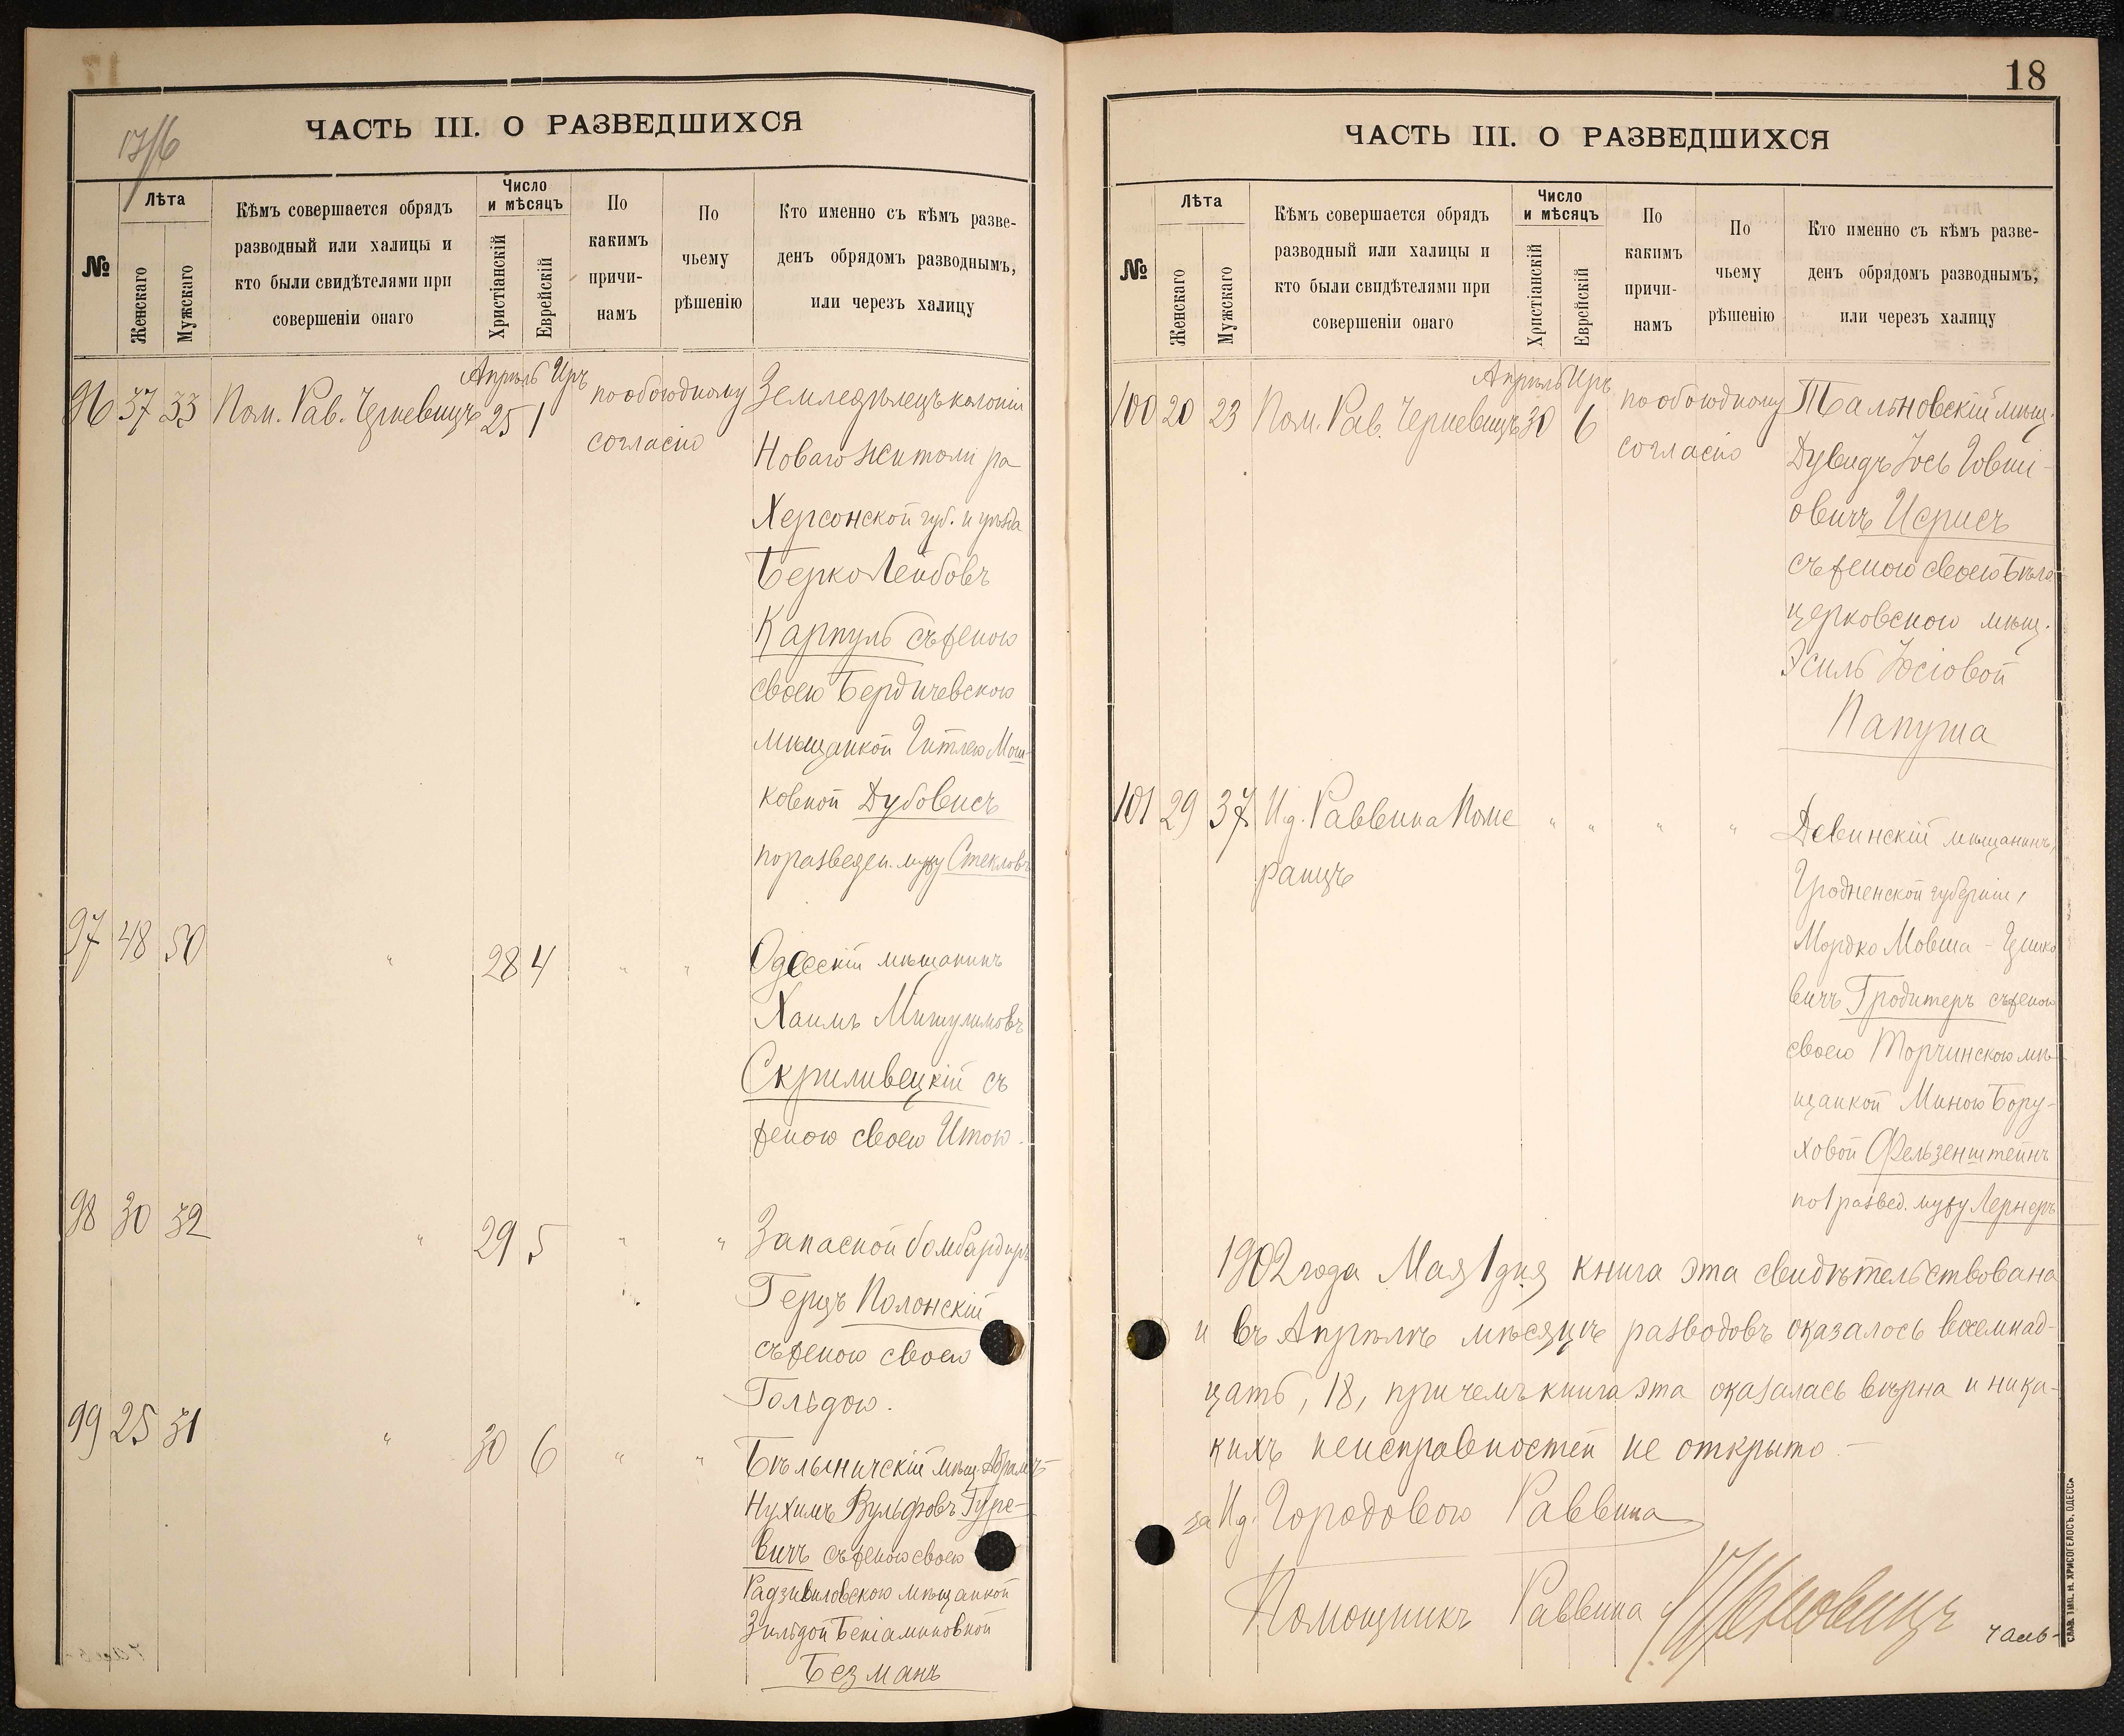 17/6
ЧАСТЬ III. О РАЗВЕДШИХСЯ
№
Лѣта
Женскаго
Мужскаго
Кѣмъ совершается обрядъ
разводный или халицы и
кто были свидѣтелями при
совершеніи онаго
Число
и мѣсяцъ
Христіанскій
Еврейскій
По
какимъ
причи-
намъ
По
чьему
рѣшенію
Кто именно съ кѣмъ разве-
денъ обрядомъ разводнымъ,
или черезъ халицу
Апрѣль Иръ
96 37 33 Пом. Рав. Черневицъ 25 1 по обоюдному Земледѣлецъ колоніи
согласію
Новаго Житоми ра
Херсонской губ. и уѣзда
Берко Лейбовъ
Карпуль съ женою
своею Бердичевскою
мѣщанкой Гитлею Мош-
ковной Дубовисъ
по разведен. мужу Стекловъ
97 48 50 " 28 4 " " Одесскій мѣщанинъ
Хаимъ Мишулимовъ
Скриливецкій съ
женою своею Итою.
98 30 32 " 29 5 " " Запасной бомбардиръ
Герцъ Полонскій
съ женою своею
Гольдою.
99 25 31 " 30 6 " " Бѣлыничскій мѣщ. Абрамъ-
Нухимъ Вульфовъ Гуре-
вичъ съ женою своею
Радзивиловскою мѣщанкой
Зильдой Беніаминовной
Безманъ
18
ЧАСТЬ III. О РАЗВЕДШИХСЯ
№
Лѣта
Женскаго
Мужскаго
Кѣмъ совершается обрядъ
разводный или халицы и
кто были свидѣтелями при
совершеніи онаго
Число
и мѣсяцъ
Христіанскій
Еврейскій
По
какимъ
причи-
намъ
По
чьему
рѣшенію
Кто именно съ кѣмъ разве-
денъ обрядомъ разводнымъ,
или черезъ халицу
Апрѣль Иръ
100 20 23 Пом. Рав. Черневицъ 30 6 по обоюдному Тальновскій мѣщ.
согласію
Дувидъ Іось Іовши-
овичъ
съ женою своею Бѣло-
церковскою мѣщ.
Эсиль Іосіовой
Папуша
101 29 37 И.д. Раввина Поме " " " " Девинскій мѣщанинъ,
ранцъ
Гродненской губерніи,
Мордко Мовша-
вичъ Гродитеръ съ женою
своею Торчинскою мѣ-
щанкой Миною Бору-
ховой Фельзенштейнъ
по 1 развед. мужу Лернеръ
1902 года Мая 1 дня книга эта свидѣтельствована
и въ Апрѣлѣ мѣсяцѣ разводовъ оказалось восемнад-
цать, 18, причемъ книга эта оказалась вѣрна и ника-
кихъ неисправностей не открыто.-
за И.д. Городового Раввина
Помощникъ Раввина
СЛАВ. ТИП. Н. ХРИСОГЕЛОСЪ, ОДЕССА